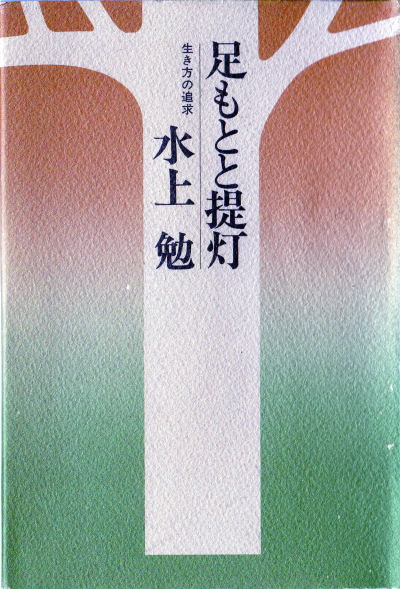 足もとと提灯
生き方の追求
水上 勉